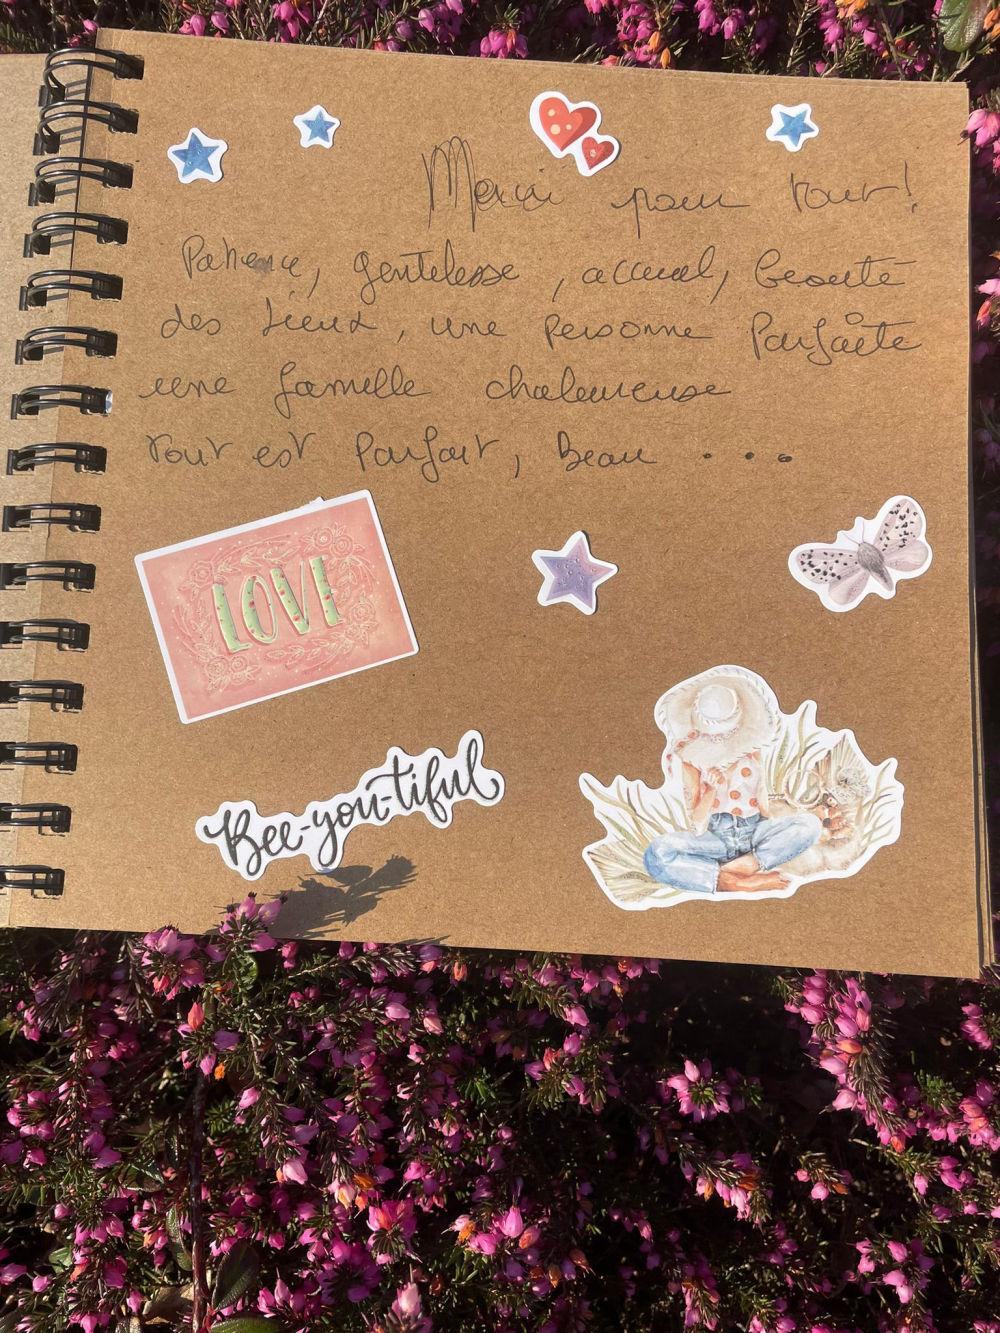 Merci pour tout!
Patience, gentelesse, accueil, beauté
des lieux, une personne Parfaite
une famille chaleureuse
Tout est Parfait, Beau ...
LOVE
Bee-you-tiful